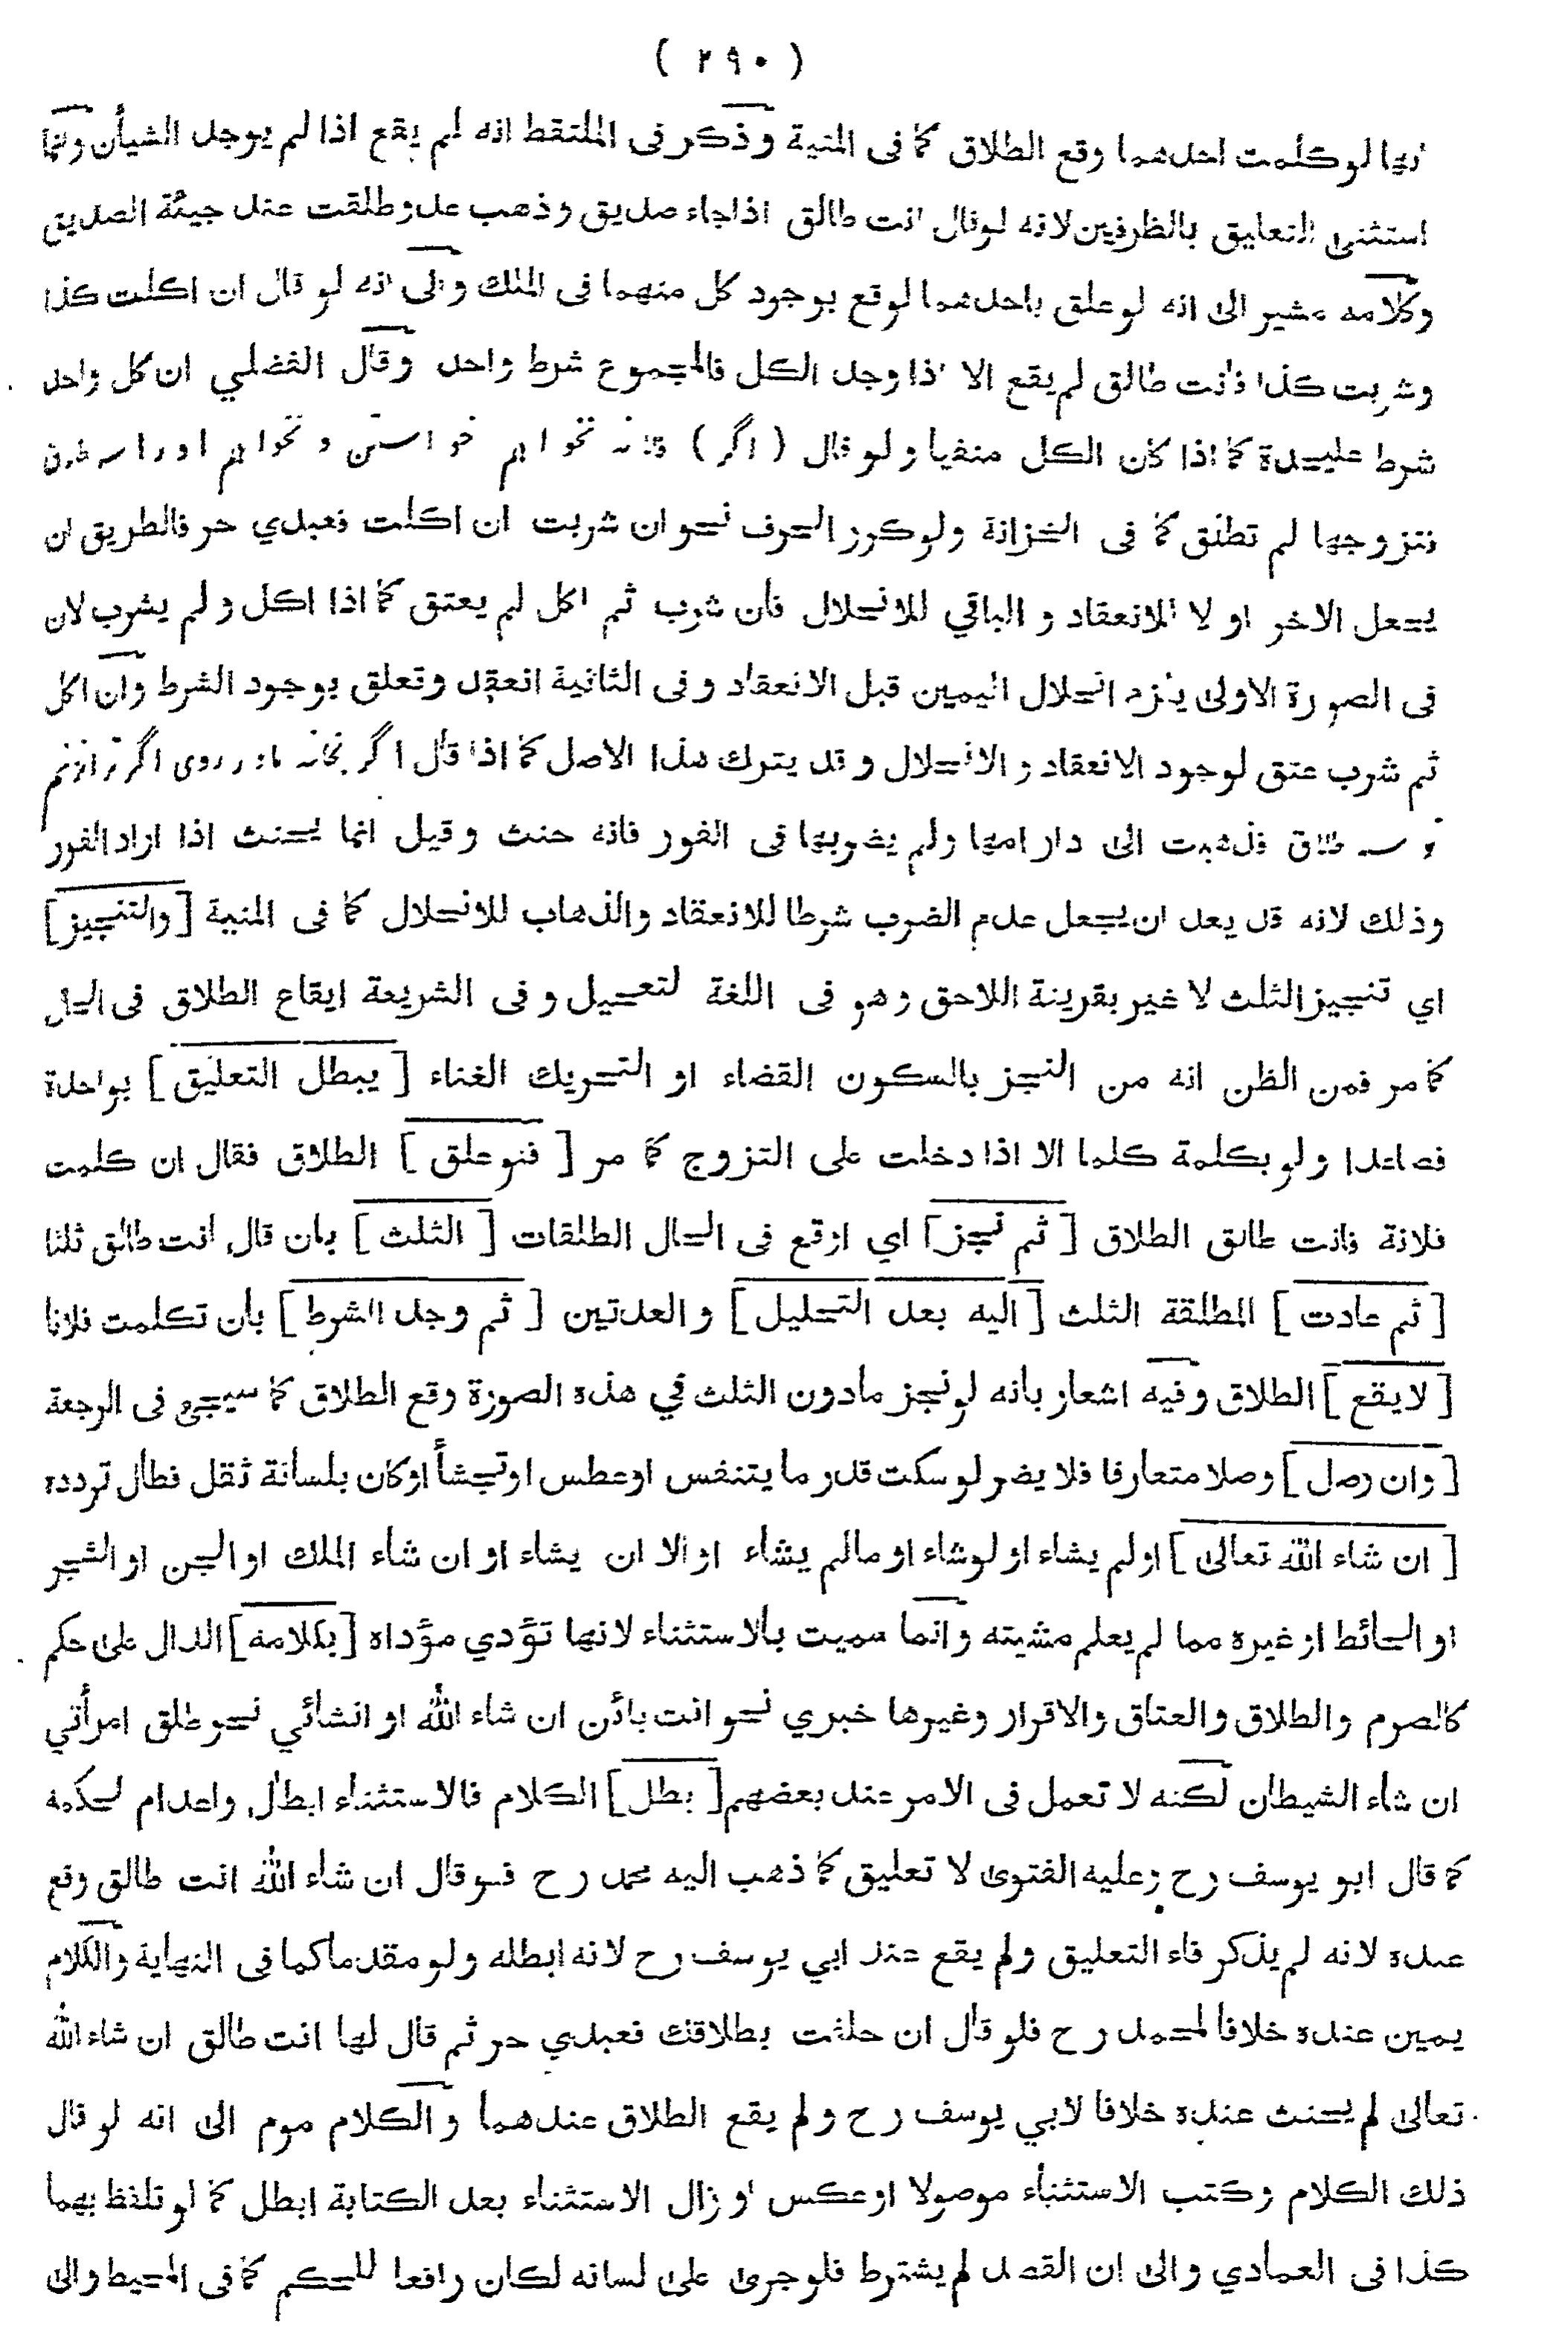 ( ٢٩٠ )
لو كلمت احدهما وقع الطلاق كما فى المنية وذكر فى الملتقط انه لم يقع اذا لم يوجد الشيأن وانما
استثنى التعليق بالظرفين لانه لو قال انت طالق اذا جاء صديق وذهب عدو طلقت عند جيئة الصديق
وكلامه مشير الى انه لو علق باحدهما لوقع بوجود كل منهما فى الملك والى انه لو قال ان اكلت كذا
وشربت كذا فانت طالق لم يقع الا اذا وجد الكل فالمجموع شرط واحد وقال الفضلي ان كل واحد
شرط عليحدة كما اذا كان الكل منفيا ولو قال ( اگر )
فتزوجها لم تطلق كما فى الخزانة ولو كرر الحرف نحو ان شربت ان اكلت فعبدي حر فالطريق ان
يجعل الاخر او لا للانعقاد و الباقي للانحلال فأن شرب ثم اكل لم يعتق كما اذا اكل ولم يشرب لان
فى الصورة الاولى يلزم انحلال اليمين قبل الانعقاد وفى الثانية انعقد وتعلق بوجود الشرط وان اكل
ثم شرب عتق لوجود الانعقاد و الانحلال وقد يترك هذا الاصل كما اذا قال اگر
طلاق فذهبت الى دار امها ولم يضربها فى الفور فانه حنث وقيل انما يحنث اذا اراد الفور
وذلك لانه قد يعد ان يجعل عدم الضرب شرطا للانعقاد والذهاب للانحلال كما فى المنية [ والتنجيز ]
اي تنجيز الثلث لا غير بقرينة اللاحق وهو فى اللغة لتعجيل و فى الشريعة ايقاع الطلاق فى الحال
كما مر فمن الظن انه من النجز بالسكون القضاء او التحريك الغناء [ يبطل التعليق ] بواحدة
فصاعدا ولو بكلمة كلما الا اذا دخلت على التزوج كما مر [ فلو علق ] الطلاق فقال ان كلمت
فلانة فانت طالق الطلاق [ ثم نجز ] اي اوقع فى الحال الطلقات [ الثلث ] بأن قال انت طالق ثلثا
[ ثم عادت ] المطلقة الثلث [ اليه بعد التحليل ] والعدتين [ ثم وجد الشرط ] بأن تكلمت فلانا
[ لا يقع ] الطلاق وفيه اشعار بأنه لو نجز مادون الثلث في هذه الصورة وقع الطلاق كما سيجىء فى الرجعة
[ وان وصل ] وصلا متعارفا فلا يضر لو سكت قدر ما يتنفس او عطس او تجشأ او كان بلسانة ثقل فطال تردده
[ ان شاء الله تعالى ] او لم يشاء او لو شاء او مالم يشاء او الا ان يشاء او ان شاء الملك او الجن او الشجر
او الحائط او غيره مما لم يعلم مشيته وانما سميت بالاستثناء لانها تؤدي مؤداه [ بكلامه ] الدال على حكم
كالصوم والطلاق والعتاق والاقرار وغيرها خبري نحو انت بائن ان شاء الله او انشائي نحو طلق امرأتي
ان شاء الشيطان لكنه لا تعمل فى الامر عند بعضهم [ بطل ] الكلام فالاستثناء ابطال واعدام لحكمه
كما قال ابو يوسف رح وعليه الفتوى لا تعليق كما ذهب اليه محمد رح فلو قال ان شاء الله انت طالق وقع
عنده لانه لم يذكر فاء التعليق ولم يقع عند ابي يوسف رح لانه ابطله ولو مقدما كما فى النهاية والكلام
يمين عنده خلافا لمحمد رح فلو قال ان حلفت بطلاقك فعبدي حر ثم قال لها انت طالق ان شاء الله
تعالى لم يحنث عنده خلافا لابي يوسف رح ولم يقع الطلاق عندهما والكلام موم الى انه لو قال
ذلك الكلام وكتب الاستثناء موصولا او عكس او زال الاستثناء بعد الكتابة ابطل كما لو تلفظ بهما
كذا فى العمادي والى ان القصد لم يشترط فلو جرى على لسانه لكان رافعا للحكم كما فى المحيط والى